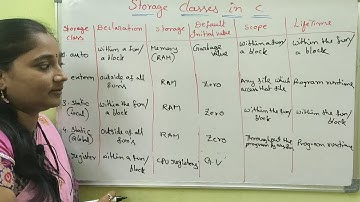 Storage Classes in C
Storage class Declaration Storage Default Initial value Scope LifeTime
auto within a fun/ a block Memory (RAM) Garbage value within a fun/ a block within the fun/ a block
extern outside of all fun's RAM Zero Any file which access that file Program runtime
3. static (Local) within the fun/ a block RAM Zero within the fun/ block within the fun/ block
4. static (Global) outside of all fun's RAM Zero Throughout the program Program runtime
register within a fun/ block CPU registers G.V within the fun/ block within the fun/ block